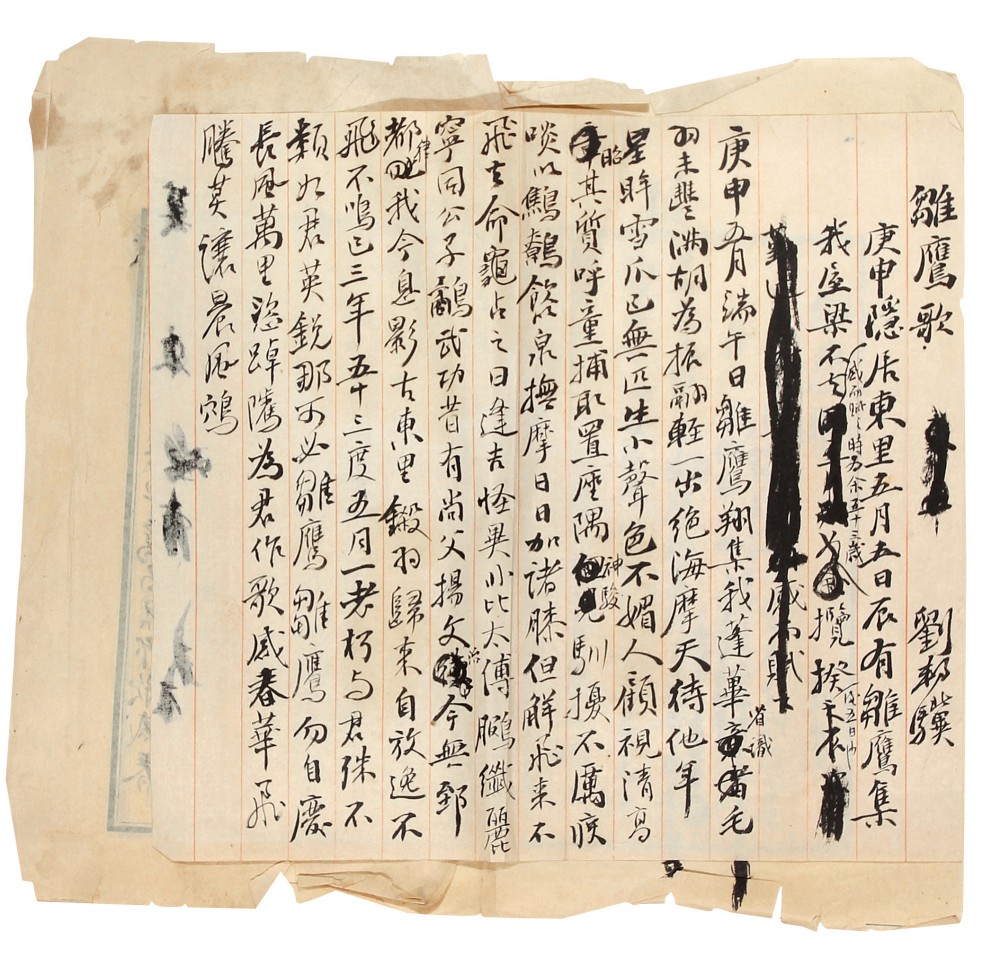 雛鷹歌　劉春驥
庚申隱居東里五月五日辰有雛鷹集
我屋梁不去感而賦之時為余五十三歲攬揆之
感而賦
庚申五月端午日雛鷹翔集我蓬蓽省識毛
羽未豐滿胡為振翮輕一出絕海摩天待他年
星眸雪爪已無匹生小聲色不媚人顧視清高
昭其質呼童捕取置座隅神駿馴擾不厲疾
啖以鷦鷯飲泉撫摩日日加諸膝但解飛來不
飛去命龜占之曰逢吉怪異小比太傅鵩纖麗
寧同公子鷸武功昔有尚父揚文治今無郅
都律我今息影古東里鎩羽歸來自放逸不
飛不鳴已三年五十三度五月一老朽與君殊不
類如君英銳那可必雛鷹雛鷹勿自慶
長風萬里恣踔騰為君作歌感春華飛
騰莫讓晨風鴥